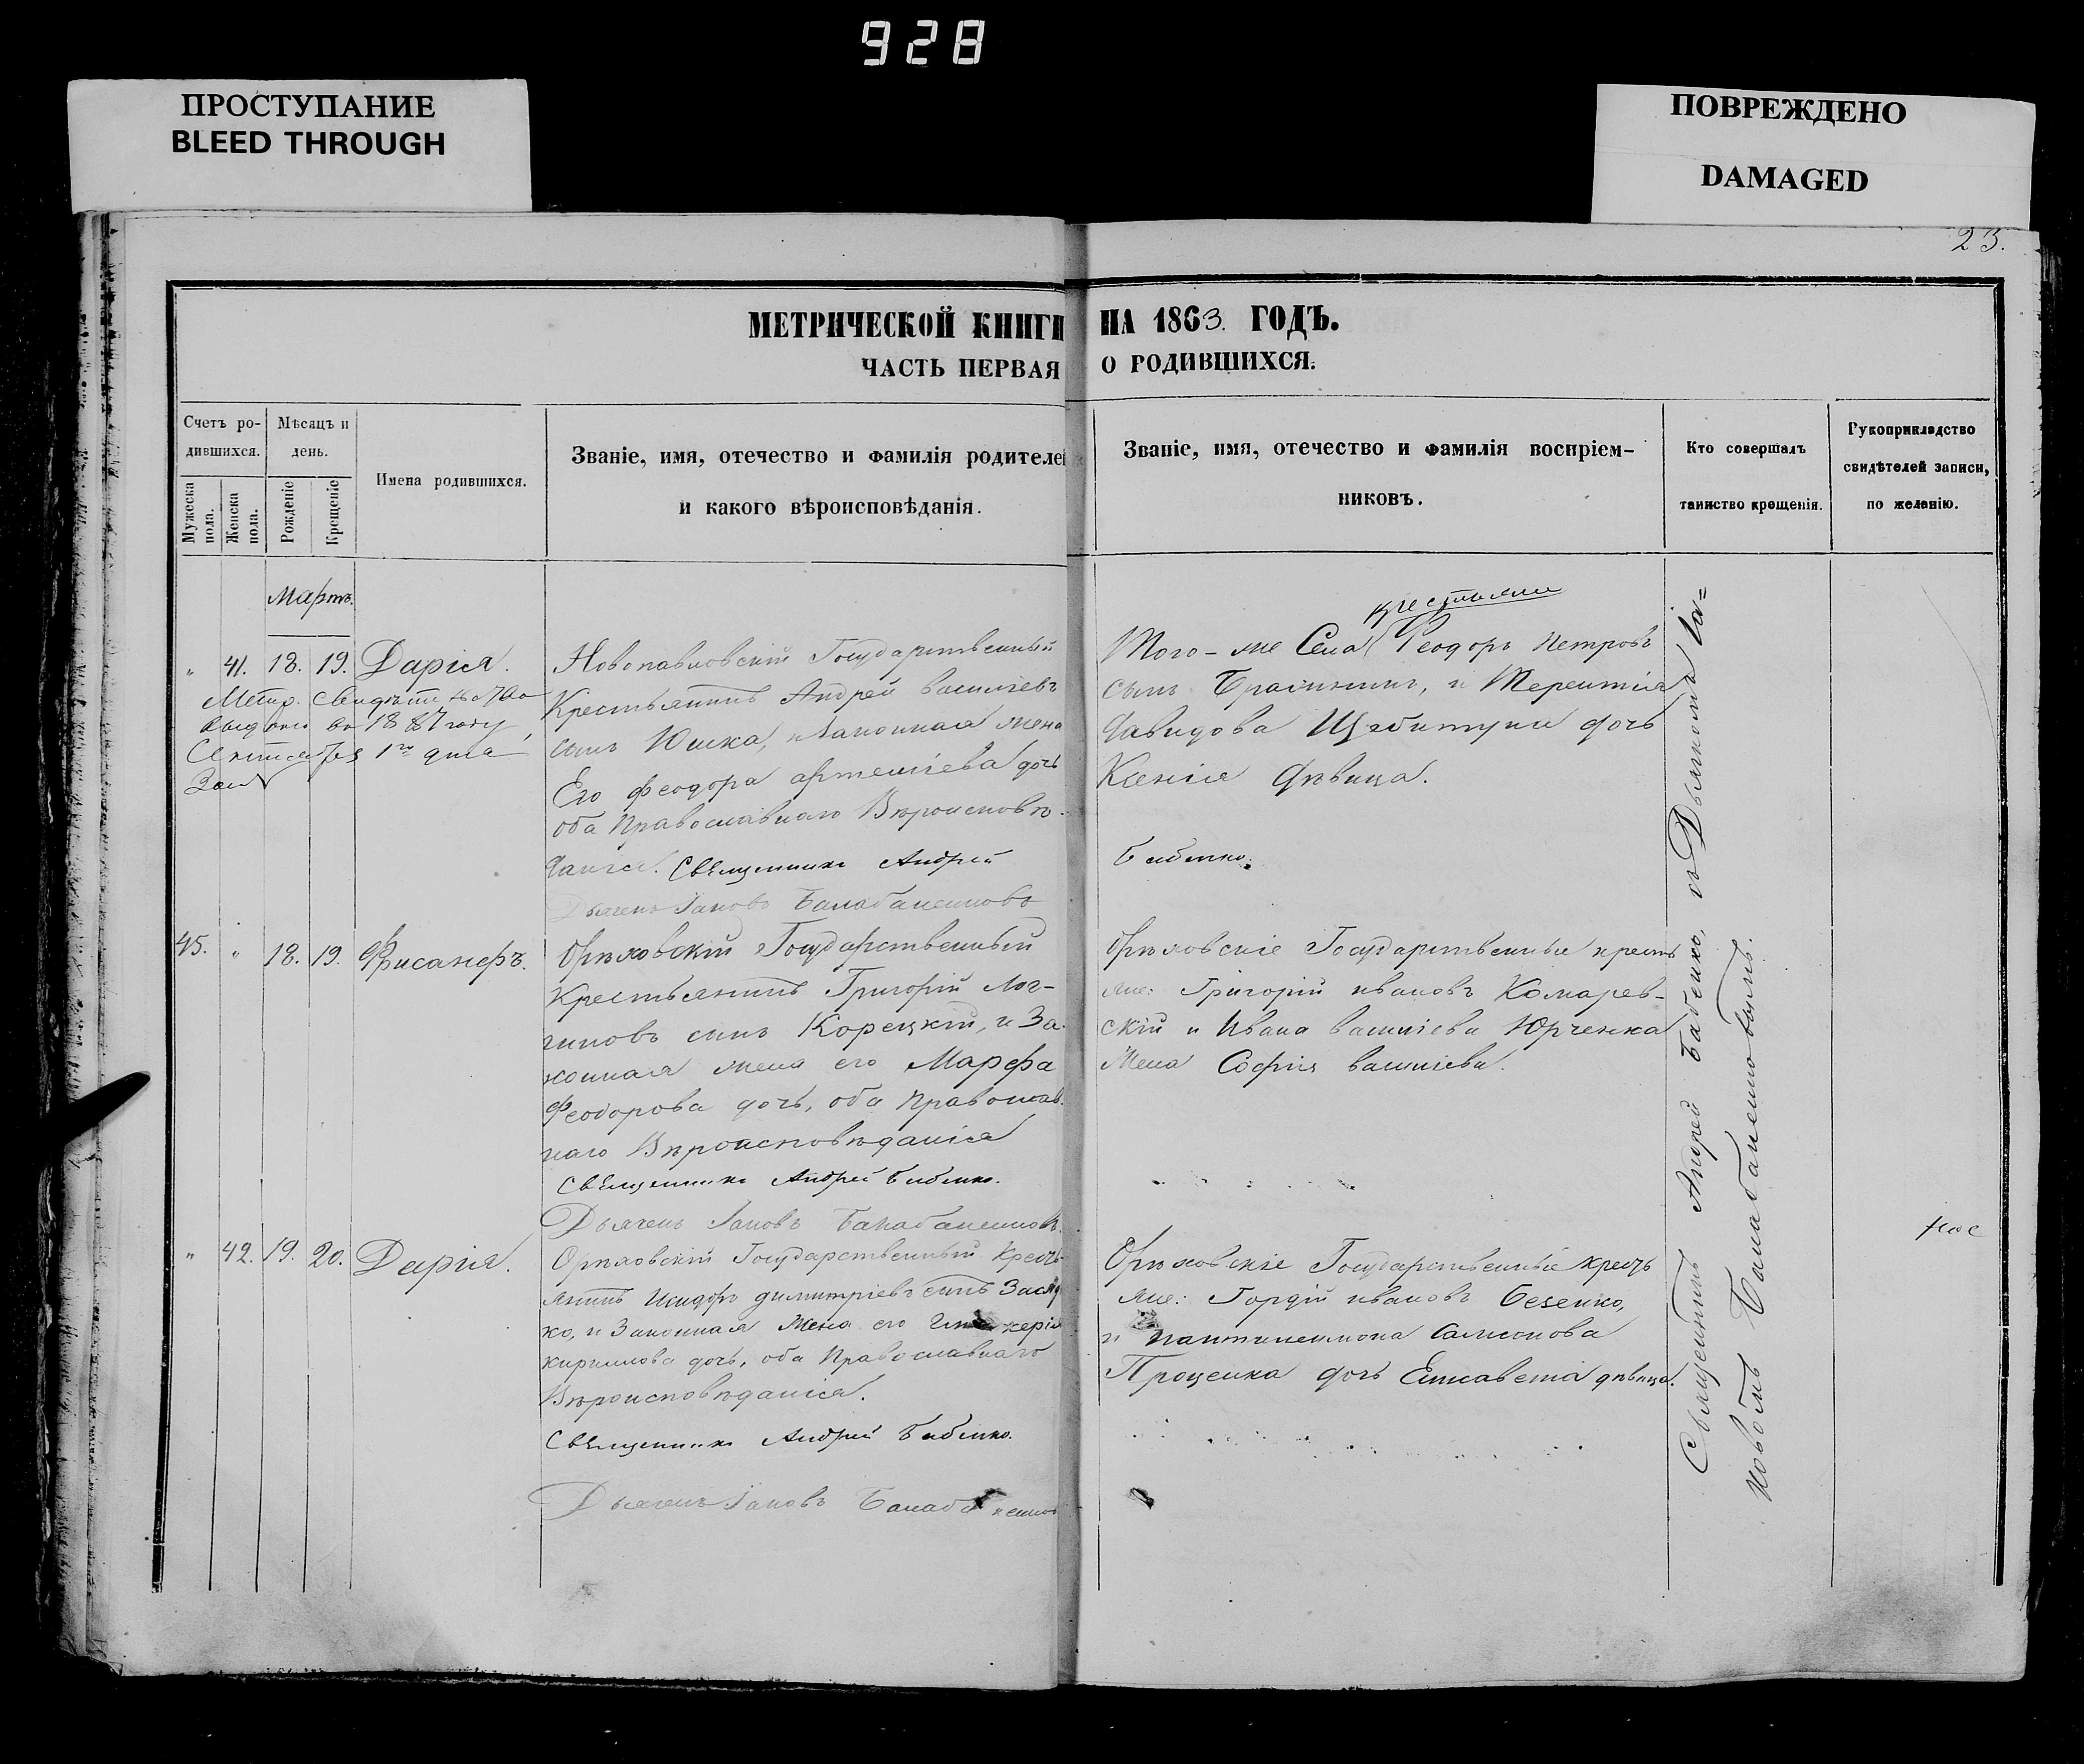 928
ПРОСТУПАНИЕ
BLEED THROUGH
ПОВРЕЖДЕНО
DAMAGED
23.
МЕТРИЧЕСКОЙ КНИГИ НА 1863. ГОДЪ.
ЧАСТЬ ПЕРВАЯ О РОДИВШИХСЯ.
Счетъ ро-
дившихся.
Мужеска пола.
Женска пола.
Мѣсяцъ и
день.
Рожденіе
Крещеніе
Имена родившихся.
Званіе, имя, отечество и фамилія родителей
и какого вѣроисповѣданія.
Званіе, имя, отечество и фамилія воспріем-
никовъ.
Кто совершалъ
таинство крещенія.
Рукоприкладство
свидѣтелей записи,
по желанію.
Мартъ.
„ 41. 18. 19. Дарія.
Метр. Свидѣт №
выдано въ 1887 году
Сентября 1го дня
Новопавловскій Государственный
Крестьянинъ Андрей Василіевъ
сынъ Юшка, и Законная жена
Его Феодора Артеміева дочь
оба Православнаго Вѣроисповѣ-
данія. Священникъ Андрей Бабенко.
Дьячекъ Іаковъ Балабаненковъ
крестьяне
Того-же Села Феодоръ Петровъ
сынъ и Терентія
Давидова дочь
Ксенія Дѣвица.
45. „ 18. 19. Фрисанфъ.
Орѣховскій Государственный
Крестьянинъ Григорій Лог-
гиновъ сынъ Корецкій, и За-
конная жена его Марфа
Феодорова дочь, оба Православ-
наго Вѣроисповѣданія
Священникъ Андрей Бабенко.
Дьячекъ Іаковъ Балабаненковъ.
Орѣховскіе Государственные кресть
яне: Григорій Ивановъ Комарев-
скій и Ивана Василіева Юрченка
Жена Софія Василіева.
„ 42. 19. 20. Дарія.
Орѣховскій Государственный Кресть
янинъ Исидоръ Димитріевъ сынъ
ко, и Законная Жена его
Кириллова дочь, оба Православнаго
Вѣроисповѣданія.
Священникъ Андрей Бабенко.
Дьячекъ Іаковъ Балабаненковъ
Орѣховскіе Государственные кресть
яне: Гордій Ивановъ Безенко,
и Пантилеимона Самсонова
Проценка дочь Елисавета дѣвица.
Священникъ Андрей Бабенко, съ Дьячкомъ Іа-
ковомъ Балабаненковымъ.